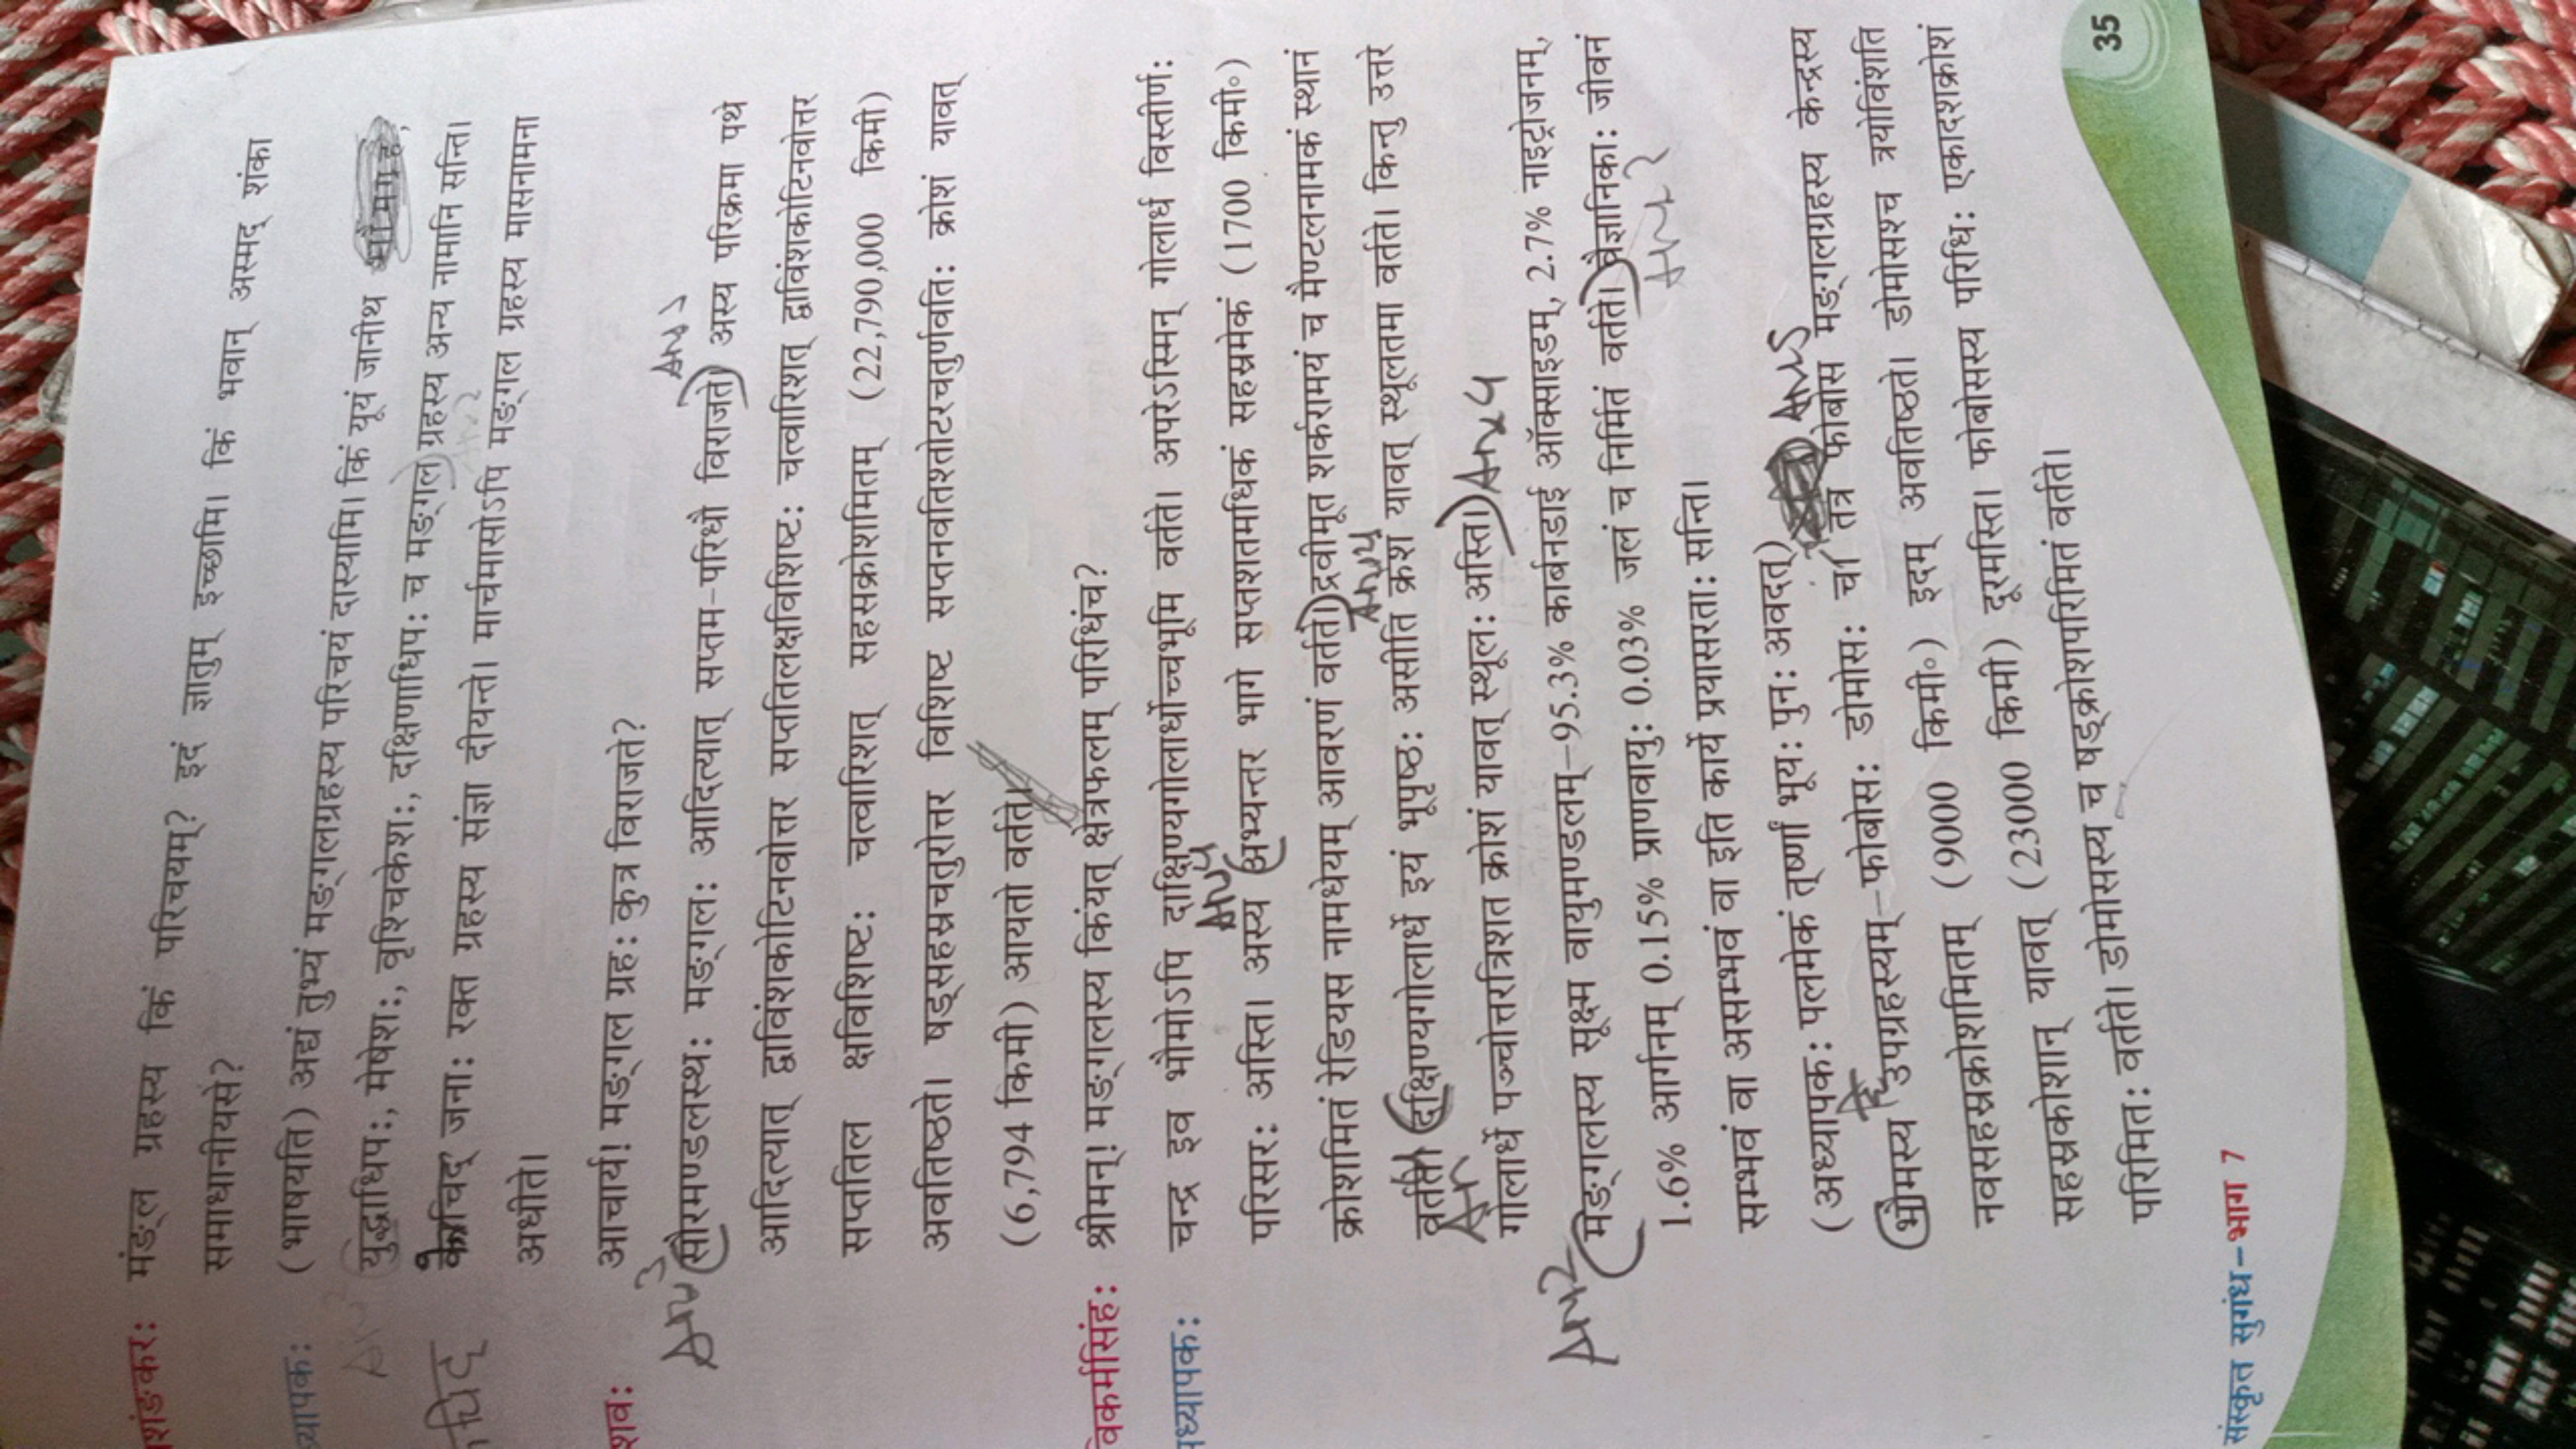 शंङकर: मंङ्ल ग्रहस्य किं परिचयम्? इदं ज्ञातुम् इच्छामि। किं भवान् अस्मद् शंका
समाधानीयसे?
ध्यापक: (भाषयति) अद्यं तुभ्यं मङ्गलग्रहस्य परिचयं दास्यामि। किं यूयं जानीथ
युद्धाधिप:, मेषेश:, वृश्चिकेश:, दक्षिणाधिप: च मङ्गल) ग्रहस्य अन्य नामानि सन्ति।
केचिद् जना: रक्त ग्रहस्य संज्ञा दीयन्ते। मार्चमासोऽपि मङ्गल ग्रहस्य मासनामना
अधीते।
शव: आचार्य! मङ्गल ग्रह: कुत्र विराजते?
Ans 3 (सौरमण्डलस्थ: मङ्गल: आदित्यात् सप्तम-परिधौ विराजते।) अस्य परिक्रमा पथे
आदित्यात् द्वाविंशकोटिनवोत्तर सप्ततिलक्षविशिष्ट: चत्वारिशत् द्वाविंशकोटिनवोत्तर
सप्ततिल क्षविशिष्ट: चत्वारिशत् सहस्रक्रोशमितम् (22,790,000 किमी)
अवतिष्ठते। षड्सहस्रचतुरोत्तर विशिष्ट सप्तनवतिशतोटरचतुर्णवति: क्रोशं यावत्
(6,794 किमी) आयतो वर्तते।
विकर्मसिंह: श्रीमन्! मङ्गलस्य किंयत् क्षेत्रफलम् परिधिंच?
ध्यापक: चन्द्र इव भौमोऽपि दाक्षिण्यगोलार्धोच्चभूमि वर्तते। अपरेऽस्मिन् गोलार्ध विस्तीर्ण:
परिसर: अस्ति। अस्य (अभ्यन्तर भागे सप्तशतमधिकं सहस्रमेकं (1700 किमी०)
क्रोशमितं रेडियस नामधेयम् आवरणं वर्तते।) द्रवीभूत शर्करामयं च मैण्टलनामकं स्थानं
वर्तते। (दक्षिण्यगोलार्धे इयं भूपृष्ठ: असीति क्रश यावत् स्थूलतमा वर्तते। किन्तु उत्तरे
गोलार्धे पञ्चोत्तरत्रिशत क्रोशं यावत् स्थूल: अस्ति।) Ans 4
Ans 2 (मङ्गलस्य सूक्ष्म वायुमण्डलम्-95.3% कार्बनडाई ऑक्साइडम्, 2.7% नाइट्रोजनम्,
1.6% आर्गनम् 0.15% प्राणवायु: 0.03% जलं च निर्मितं वर्तते।) वैज्ञानिका: जीवनं
सम्भवं वा असम्भवं वा इति कार्ये प्रयासरता: सन्ति।
(अध्यापक: पलमेकं तूष्णीं भूय: पुन: अवदत्) Ans
(भौमस्य उपग्रहस्यम्-फोबोस: डोमोस: च।) तत्र फोबोस मङ्गलग्रहस्य केन्द्रस्य
नवसहस्रक्रोशमितम् (9000 किमी०) इदम् अवतिष्ठते। डोमोसश्च त्रयोविंशति
सहस्रक्रोशान् यावत् (23000 किमी) दूरमस्ति। फोबोसस्य परिधि: एकादशक्रोशं
परिमित: वर्तते। डोमोसस्य च षड्क्रोशपरिमितं वर्तते।
संस्कृत सुगंध-भाग 7
35